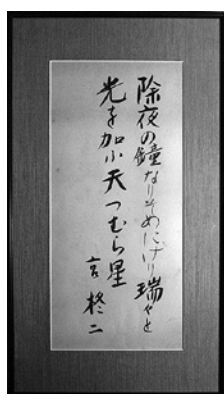 除夜の鐘なりそめにけり瑞々と
光を加ふ天つむら星
宮柊二